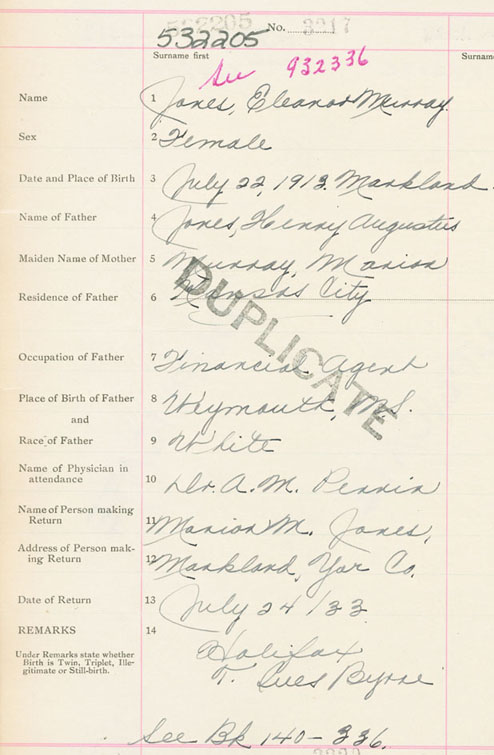 532205 No. 3217
532205
Surname first Surname
See 932336
Name 1 Jones, Eleanor Murray
Sex 2 Female
Date and Place of Birth 3 July 22, 1913. Markland.
Name of Father 4 Jones, Henry Augustus
Maiden Name of Mother 5 Murray, Marion
Residence of Father 6 Kansas City
DUPLICATE
Occupation of Father 7 Financial Agent
Place of Birth of Father 8 Weymouth, N.S.
and
Race of Father 9 White
Name of Physician in
attendance 10 Dr. A. M. Perrin
Name of Person making
Return 11 Marion M. Jones,
Address of Person mak-
ing Return 12 Markland, Yar Co.
Date of Return 13 July 24/33
REMARKS 14
Under Remarks state whether
Birth is Twin, Triplet, Ille-
gitimate or Still-birth.
Halifax
T. Ives Byrne
See Bk 140-336.